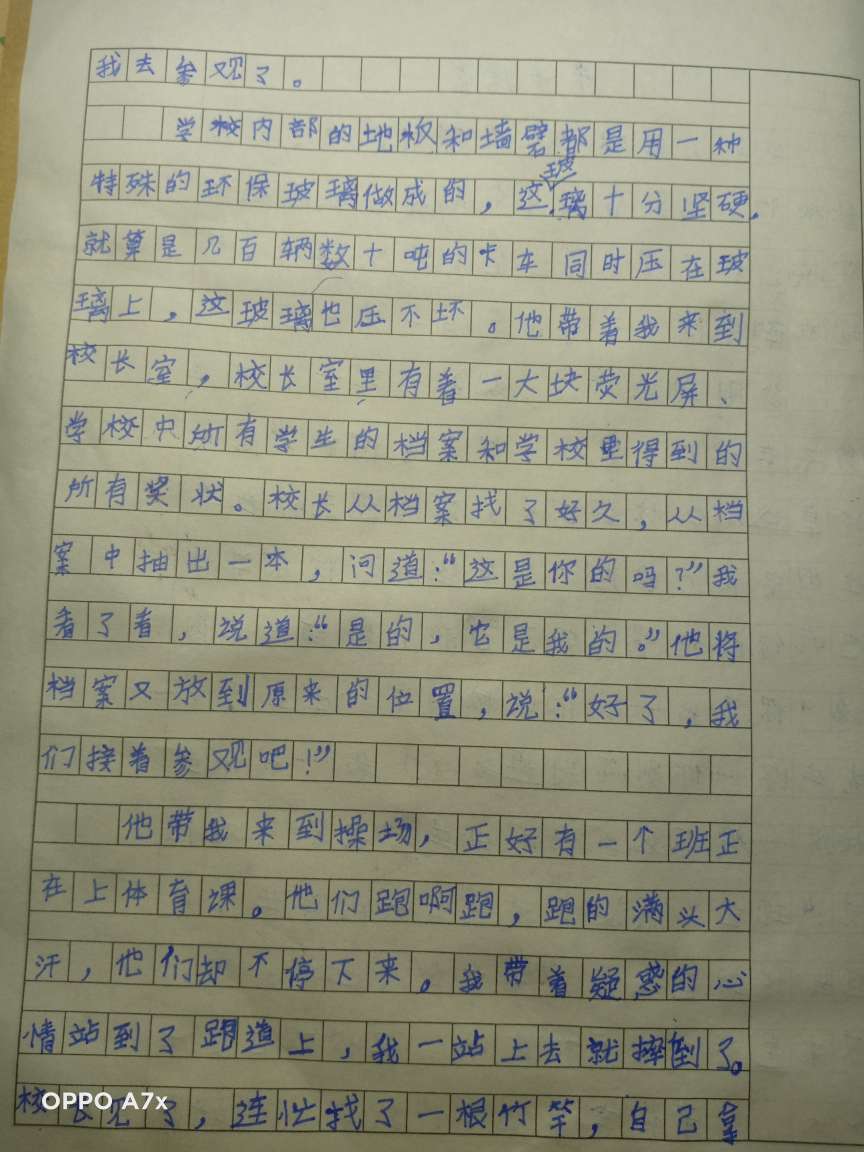 我去参观了。
学校内部的地板和墙壁都是用一种
特殊的环保玻璃做成的，这玻璃十分坚硬，
就算是几百辆数十吨的卡车同时压在玻
璃上，这玻璃也压不坏。他带着我来到
校长室，校长室里有着一大块荧光屏、
学校中所有学生的档案和学校里得到的
所有奖状。校长从档案找了好久，从档
案中抽出一本，问道：“这是你的吗？”我
看了看，说道：“是的，它是我的。”他将
档案又放到原来的位置，说：“好了，我
们接着参观吧！”
他带我来到操场，正好有一个班正
在上体育课。他们跑啊跑，跑的满头大
汗，他们却不停下来。我带着疑惑的心
情站到了跑道上，我一站上去就摔到了。
校长见了，连忙找了一根竹竿，自己拿
OPPO A7x